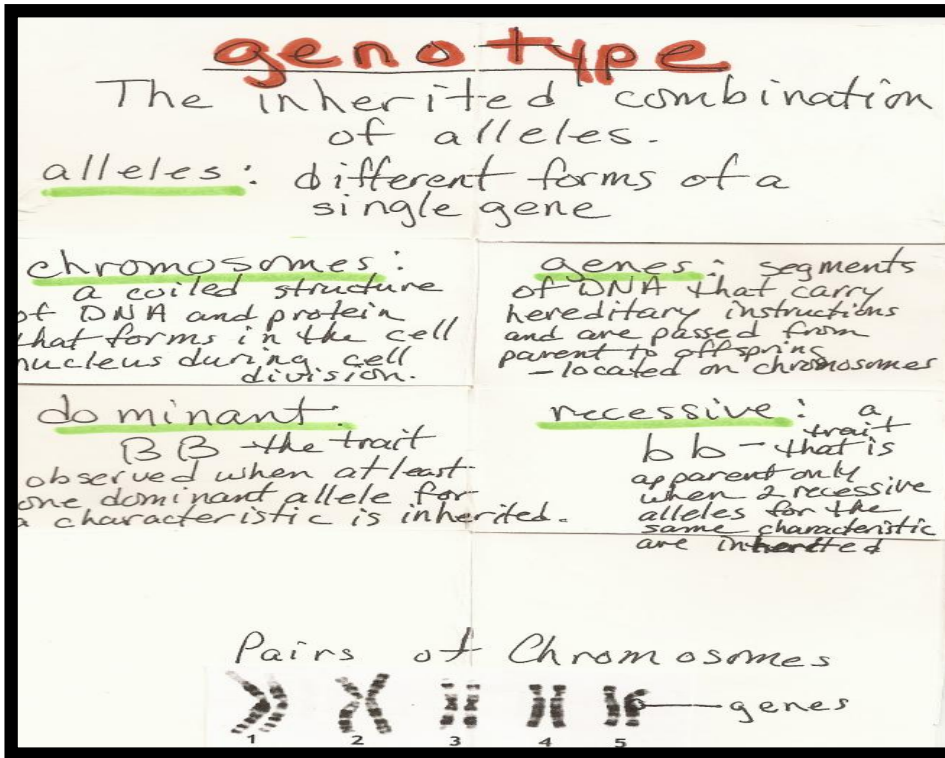 genotype
The inherited combination
of alleles.
alleles: different forms of a
single gene
chromosomes:
a coiled structure
of DNA and protein
that forms in the cell
nucleus during cell
division.
genes: segments
of DNA that carry
hereditary instructions
and are passed from
parent to offspring
- located on chromosomes
dominant:
BB - the trait
observed when at least
one dominant allele for
a characteristic is inherited.
recessive: a
trait
bb - that is
apparent only
when 2 recessive
alleles for the
same characteristic
are inherited
Pairs of Chromosomes
genes
1 2 3 4 5